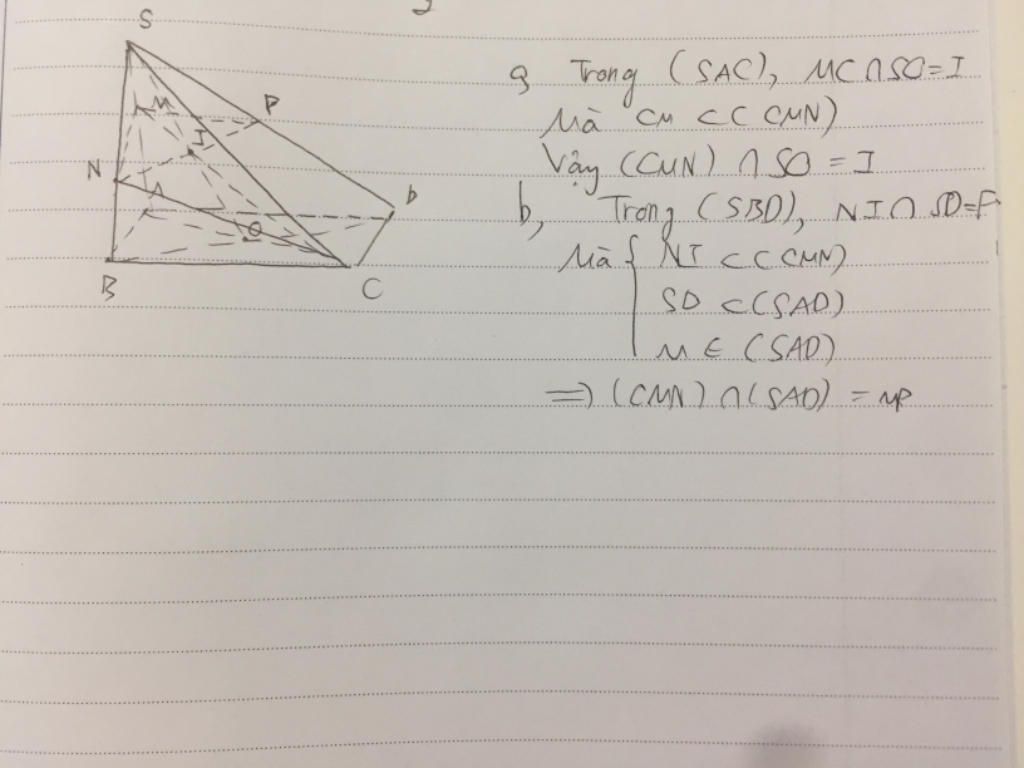 S
P
M
I
N
A
D
O
B
C
a, Trong (SAC), MC∩SO=I
Mà CM ⊂ (CMN)
Vậy (CMN) ∩ SO = I
b, Trong (SBD), NI ∩ SD=P
Mà { NI ⊂ (CMN)
SD ⊂ (SAD)
M ∈ (SAD)
=> (CMN) ∩ (SAD) = MP